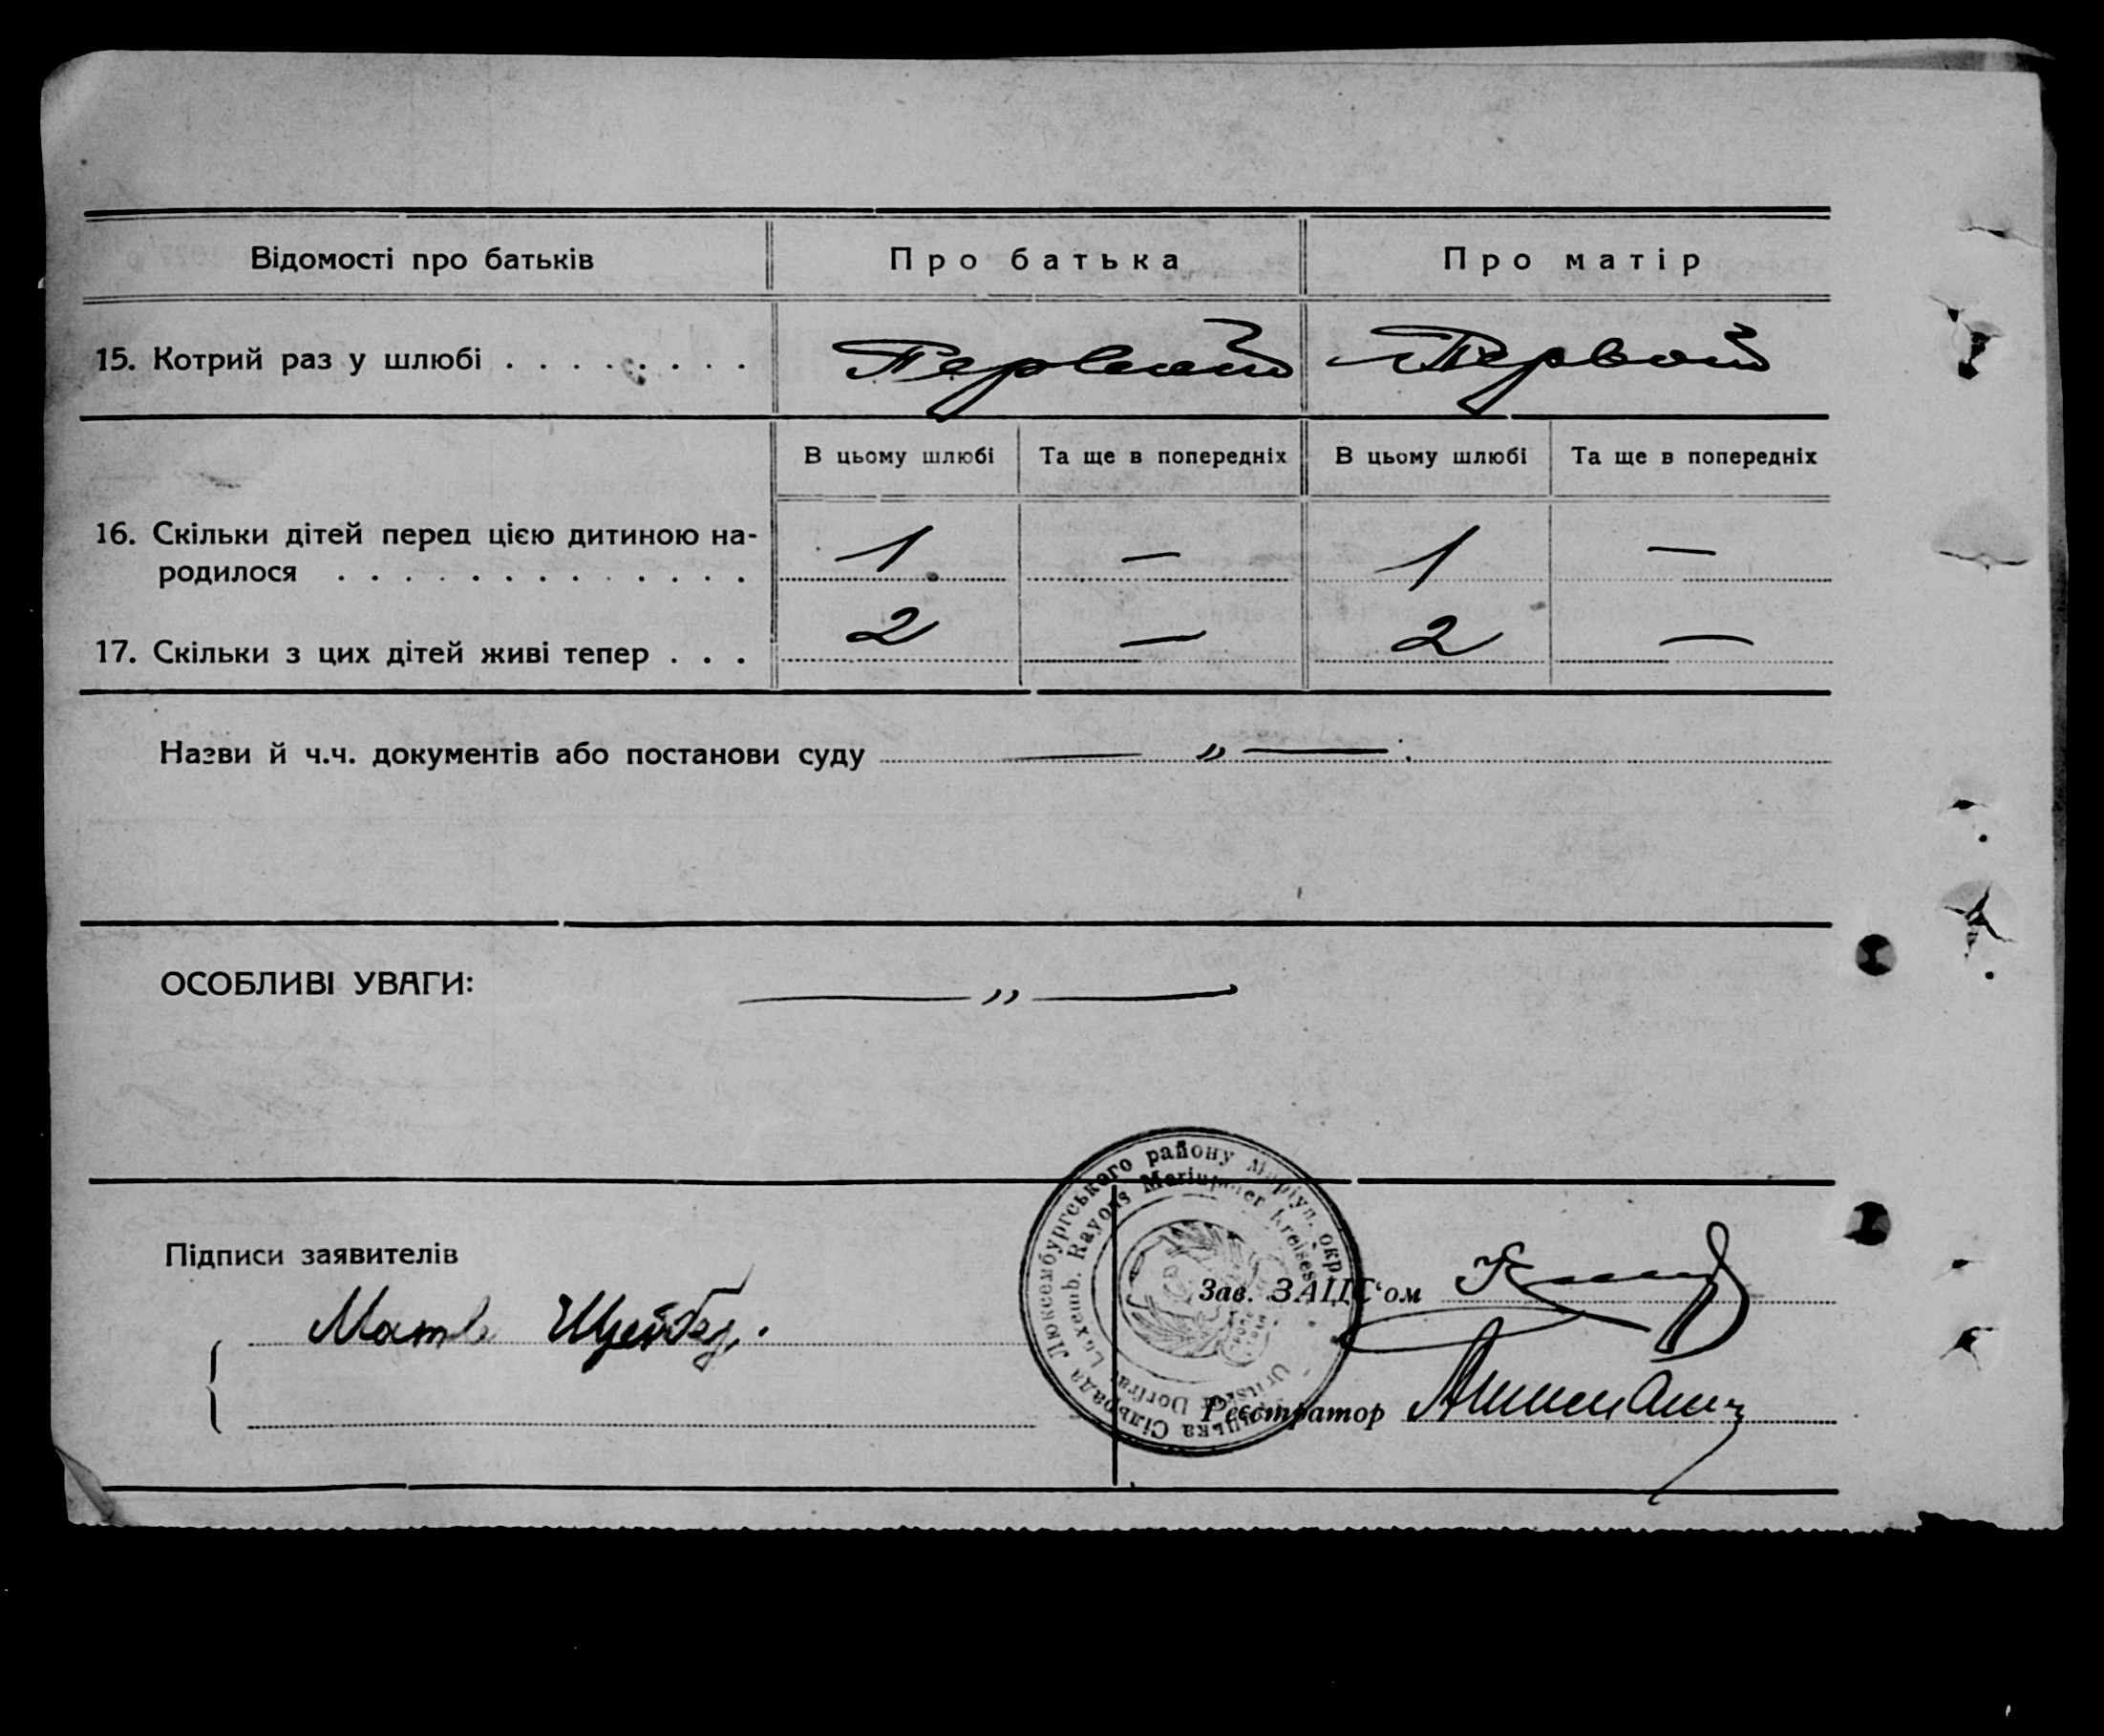 Відомості про батьків
Про батька
Про матір
15. Котрий раз у шлюбі . . . . . . . .
Первый
Первой
В цьому шлюбі
Та ще в попередніх
В цьому шлюбі
Та ще в попередніх
16. Скільки дітей перед цією дитиною на-
родилося . . . . . . . . . . . . .
1 — 1 —
17. Скільки з цих дітей живі тепер . . .
2 — 2 —
Назви й ч.ч. документів або постанови суду — „ —
ОСОБЛИВІ УВАГИ: — „ —
Підписи заявителів
Зав. ЗАЦС'ом
Реєстратор
Сільрада Люксембургського району Маріуп. окр.
Luxemb. Rayons Mariupoler Kreises